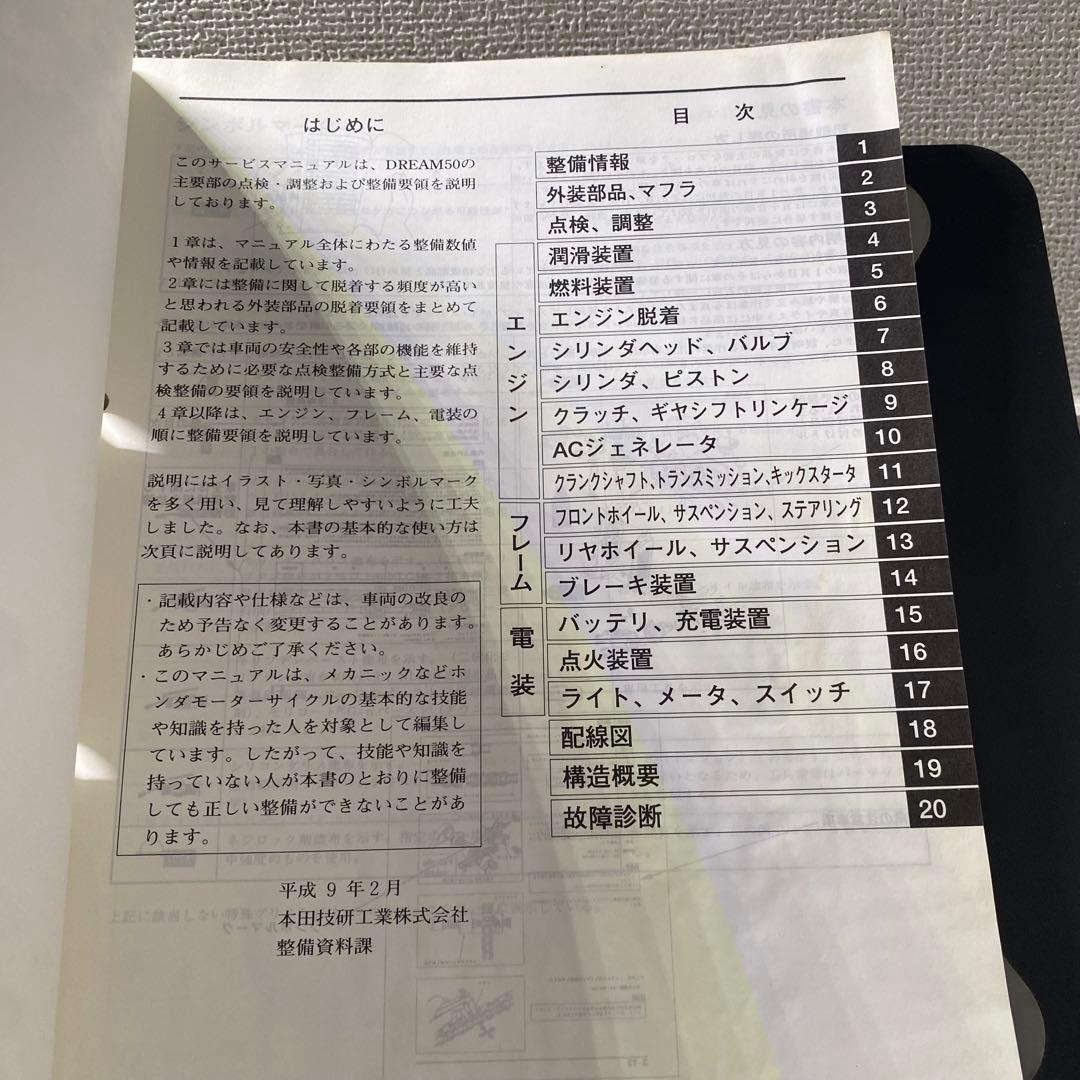 はじめに
このサービスマニュアルは、DREAM50の
主要部の点検・調整および整備要領を説明
しております。
1章は、マニュアル全体にわたる整備数値
や情報を記載しています。
2章には整備に関して脱着する頻度が高い
と思われる外装部品の脱着要領をまとめて
記載しています。
3章では車両の安全性や各部の機能を維持
するために必要な点検整備方式と主要な点
検整備の要領を説明しています。
4章以降は、エンジン、フレーム、電装の
順に整備要領を説明しています。
説明にはイラスト・写真・シンボルマーク
を多く用い、見て理解しやすいように工夫
しました。なお、本書の基本的な使い方は
次頁に説明してあります。
・記載内容や仕様などは、車両の改良の
ため予告なく変更することがあります。
あらかじめご了承ください。
・このマニュアルは、メカニックなどホ
ンダモーターサイクルの基本的な技能
や知識を持った人を対象として編集し
ています。したがって、技能や知識を
持っていない人が本書のとおりに整備
しても正しい整備ができないことがあ
ります。
平成9年2月
本田技研工業株式会社
整備資料課
目 次
整備情報 1
外装部品、マフラ 2
点検、調整 3
エンジン
潤滑装置 4
燃料装置 5
エンジン脱着 6
シリンダヘッド、バルブ 7
シリンダ、ピストン 8
クラッチ、ギヤシフトリンケージ 9
ACジェネレータ 10
クランクシャフト、トランスミッション、キックスタータ 11
フレーム
フロントホイール、サスペンション、ステアリング 12
リヤホイール、サスペンション 13
ブレーキ装置 14
電装
バッテリ、充電装置 15
点火装置 16
ライト、メータ、スイッチ 17
配線図 18
構造概要 19
故障診断 20